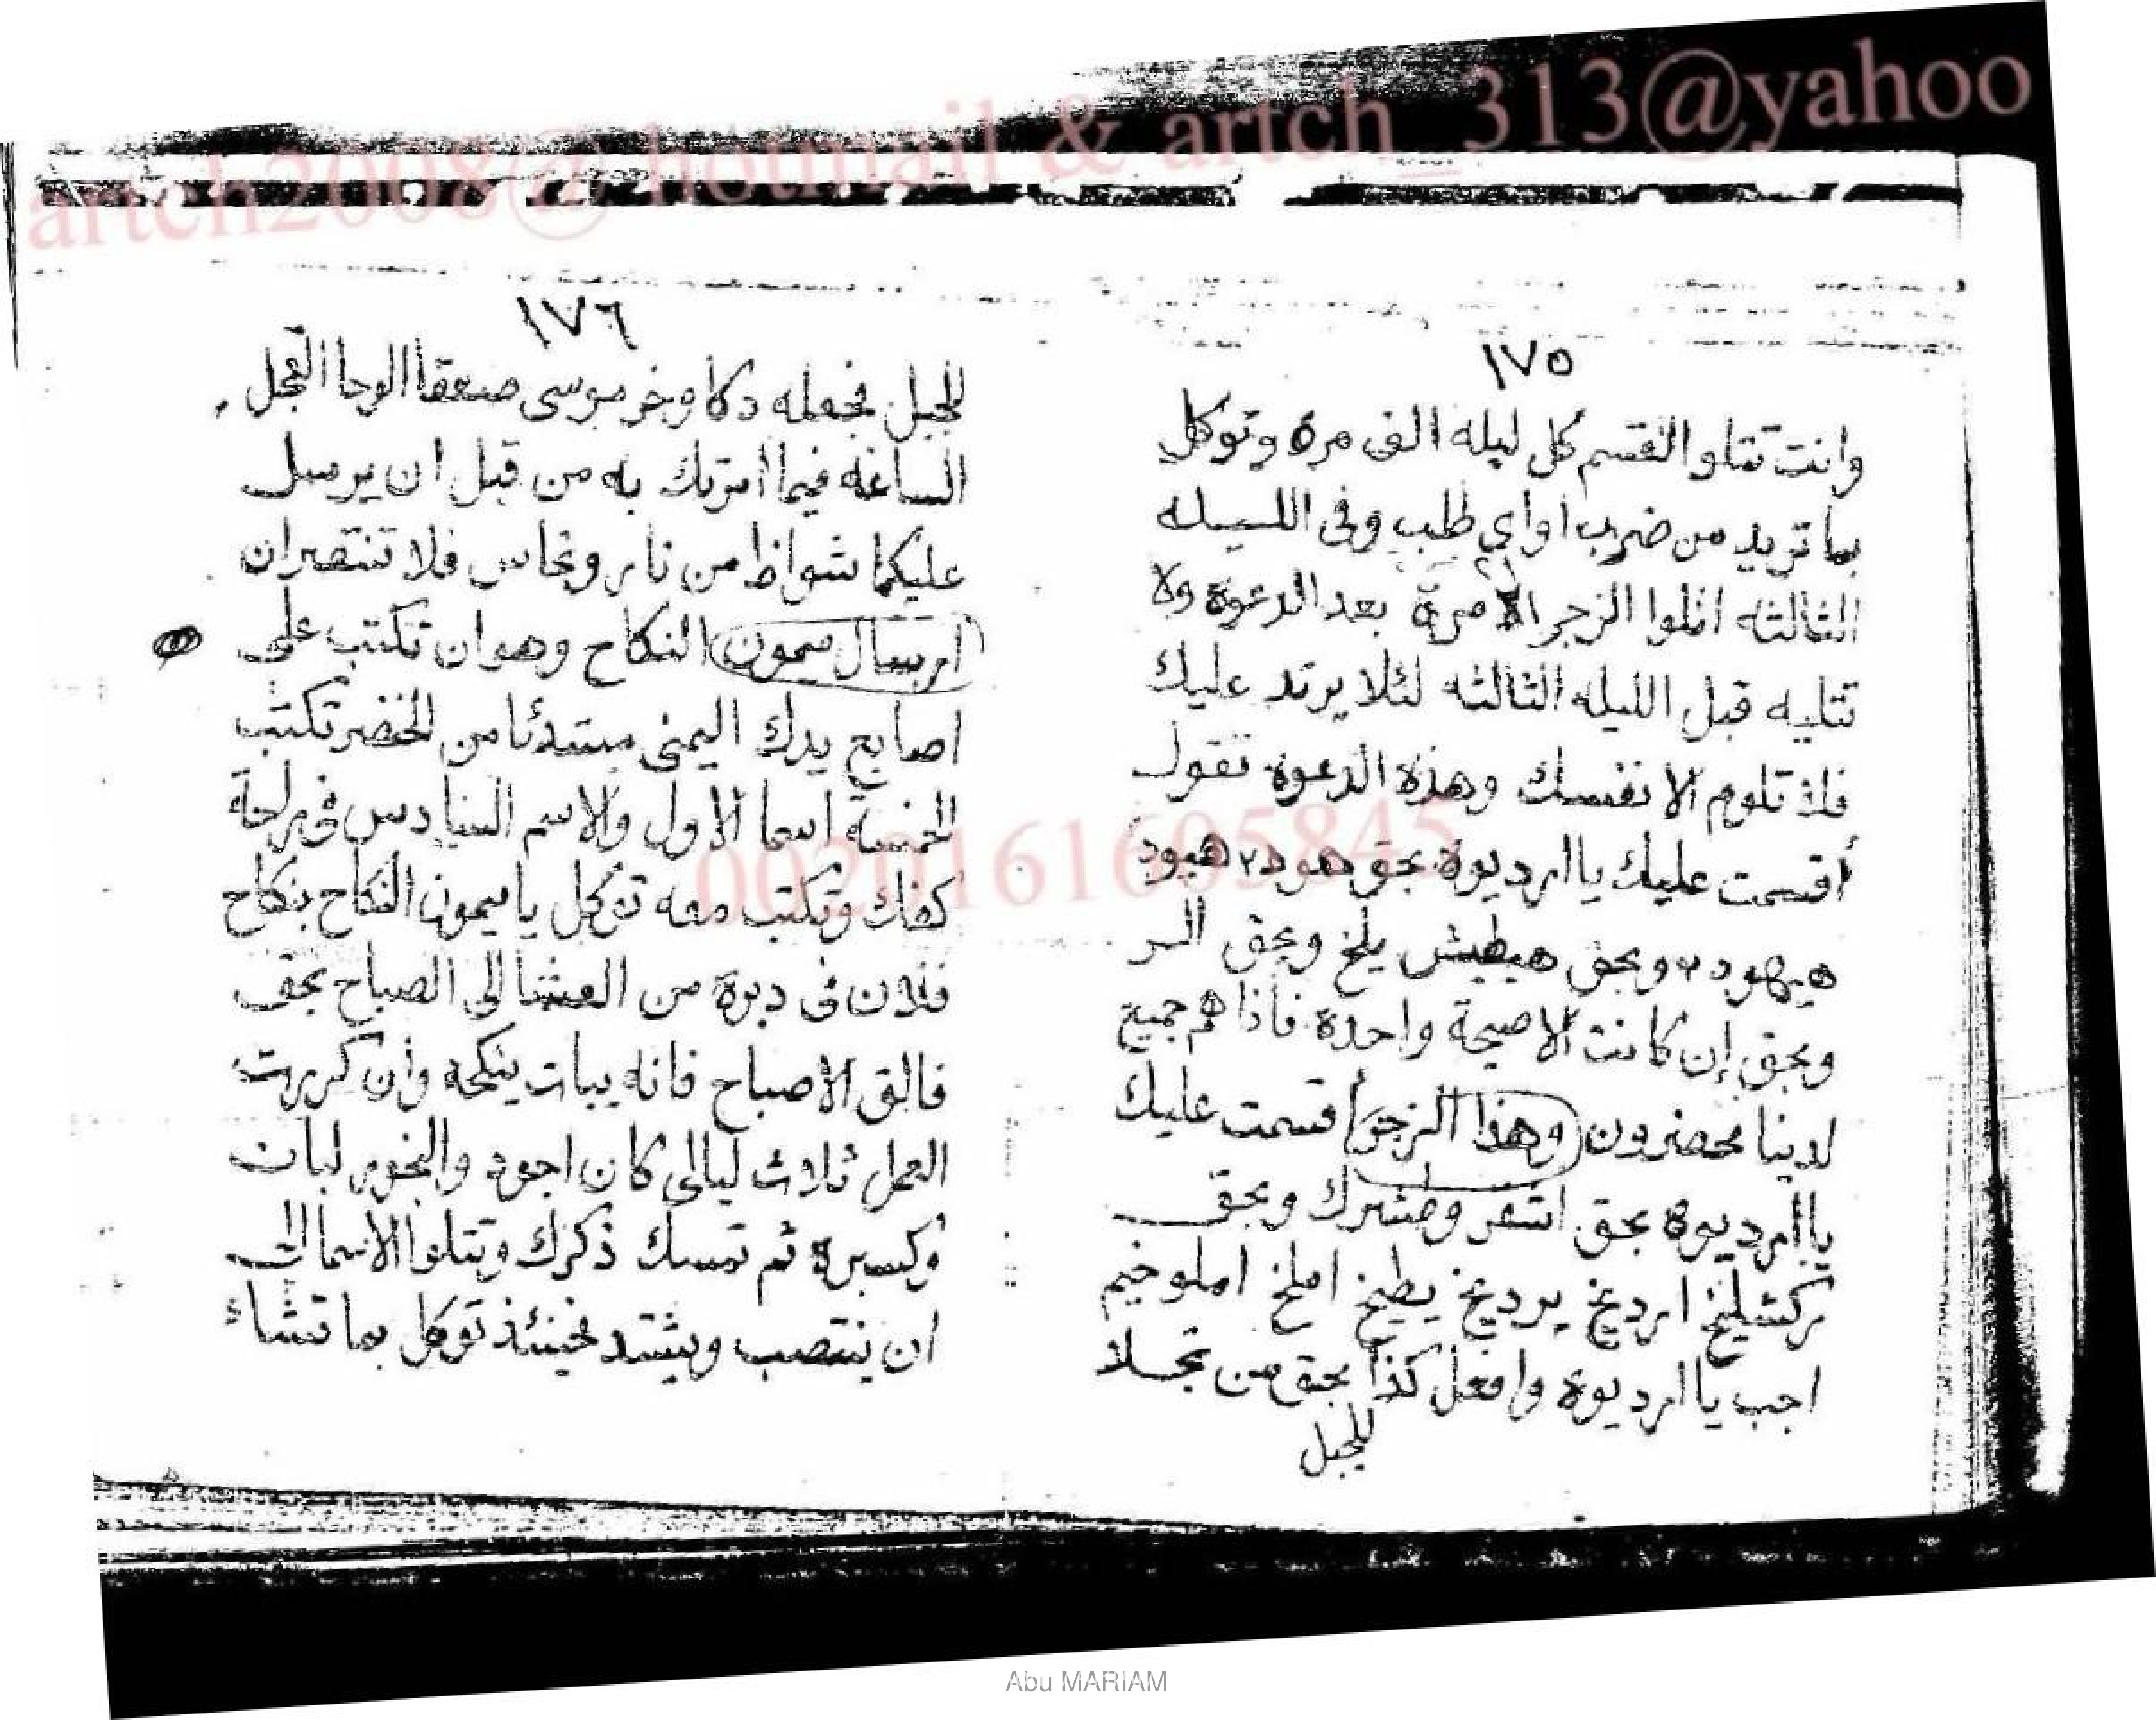 artch2008@hotmail & artch_313@yahoo
١٧٥
وانت تتلوا القسم كل ليله الف مرة وتوكل
بما تريد من ضرب او اي طلب وفى الليله
الثالثه اتلوا الزجر مرة بعد الدعوة ولا
تتليه قبل الليله الثالثه لئلا يرتد عليك
فلا تلوم الا نفسك وهذة الدعوة تقول
أقسمت عليك يا ابرديوة بحق هود٢ هيود
هيهود٢ وبحق هيطيش يلخ وبحق السر
وبحق إن كانت الا صيحة واحدة فأذا هم جميع
لدينا محضرون وهذا الزجر أقسمت عليك
يا ابرديوة بحق وبحق
املخ املوخيم
اجب يا ابرديوة وافعل كذا بحق من تجلا
للجبل
١٧٦
للجبل فجعله دكا وخر موسى صعقا الوحا العجل
الساعه فيما أمرتك به من قبل ان يرسل
عليكما شواظ من نار ونحاس فلا تنتصران
ارسال ميمون النكاح وهو ان تكتب على
اصابع يدك اليمنى مبتدئا من الخنصر تكتب
الخمسة اسما الاول والاسم السادس فى راحة
كفك وتكتب معه توكل يا ميمون النكاح بنكاح
فلان فى دبرة من العشا الى الصباح بحق
فالق الاصباح فانه يبات ينكحه وأن كررت
العمل ثلاث ليالى كان اجود والبخور لبان
وكسبرة ثم تمسك ذكرك وتتلوا الاسما الى
ان ينتصب ويشتد فحينئذ توكل بما تشاء
0020161605845
Abu MARIAM